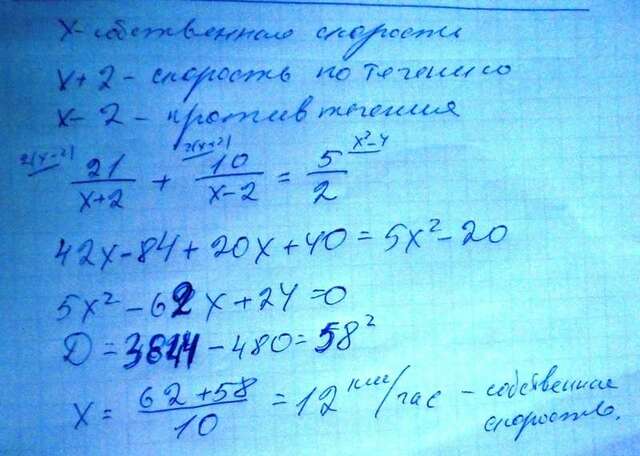 x - собственная скорость
x + 2 - скорость по течению
x - 2 - против течения
2(x-2) 21/(x+2) + 2(x+2) 10/(x-2) = 5/2 x²-4
42x - 84 + 20x + 40 = 5x² - 20
5x² - 62x + 24 = 0
D = 3844 - 480 = 58²
x = (62 + 58)/10 = 12 км/час - собственная
скорость.